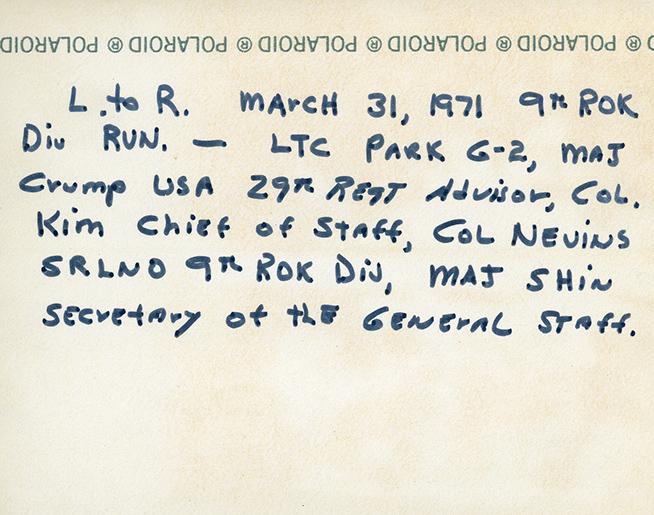 POLAROID ® POLAROID ® POLAROID ® POLAROID ® POLAROID ®
L. to R. MArCH 31, 1971 9TH ROK
Div RUN. — LTC PARK G-2, MAJ
Crump USA 29TH REGT Advisor, COL.
Kim Chief of Staff, COL NEVINS
SRLNO 9TH ROK Div, MAJ SHiN
Secretary of the GENERAL STAFF.